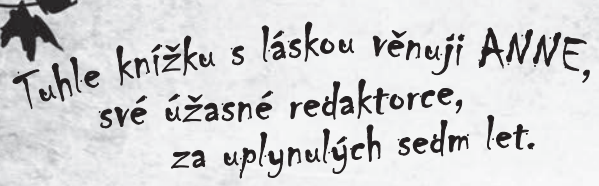 Tuhle knížku s láskou věnuji ANNE,
své úžasné redaktorce,
za uplynulých sedm let.